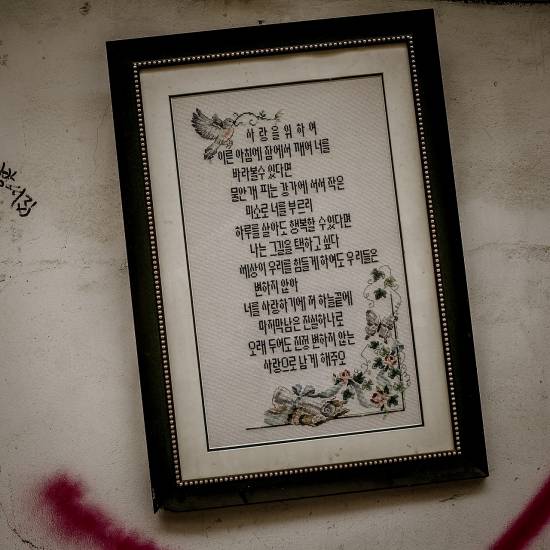 사랑을 위하여
이른 아침에 잠에서 깨어 너를
바라볼수 있다면
물안개 피는 강가에 서서 작은
미소로 너를 부르리
하루를 살아도 행복할 수있다면
나는 그길을 택하고 싶다
세상이 우리를 힘들게 하여도 우리들은
변하지 않아
너를 사랑하기에 저 하늘끝에
마지막남은 진실하나로
오래 두어도 진정 변하지 않는
사랑으로 남게 해주오